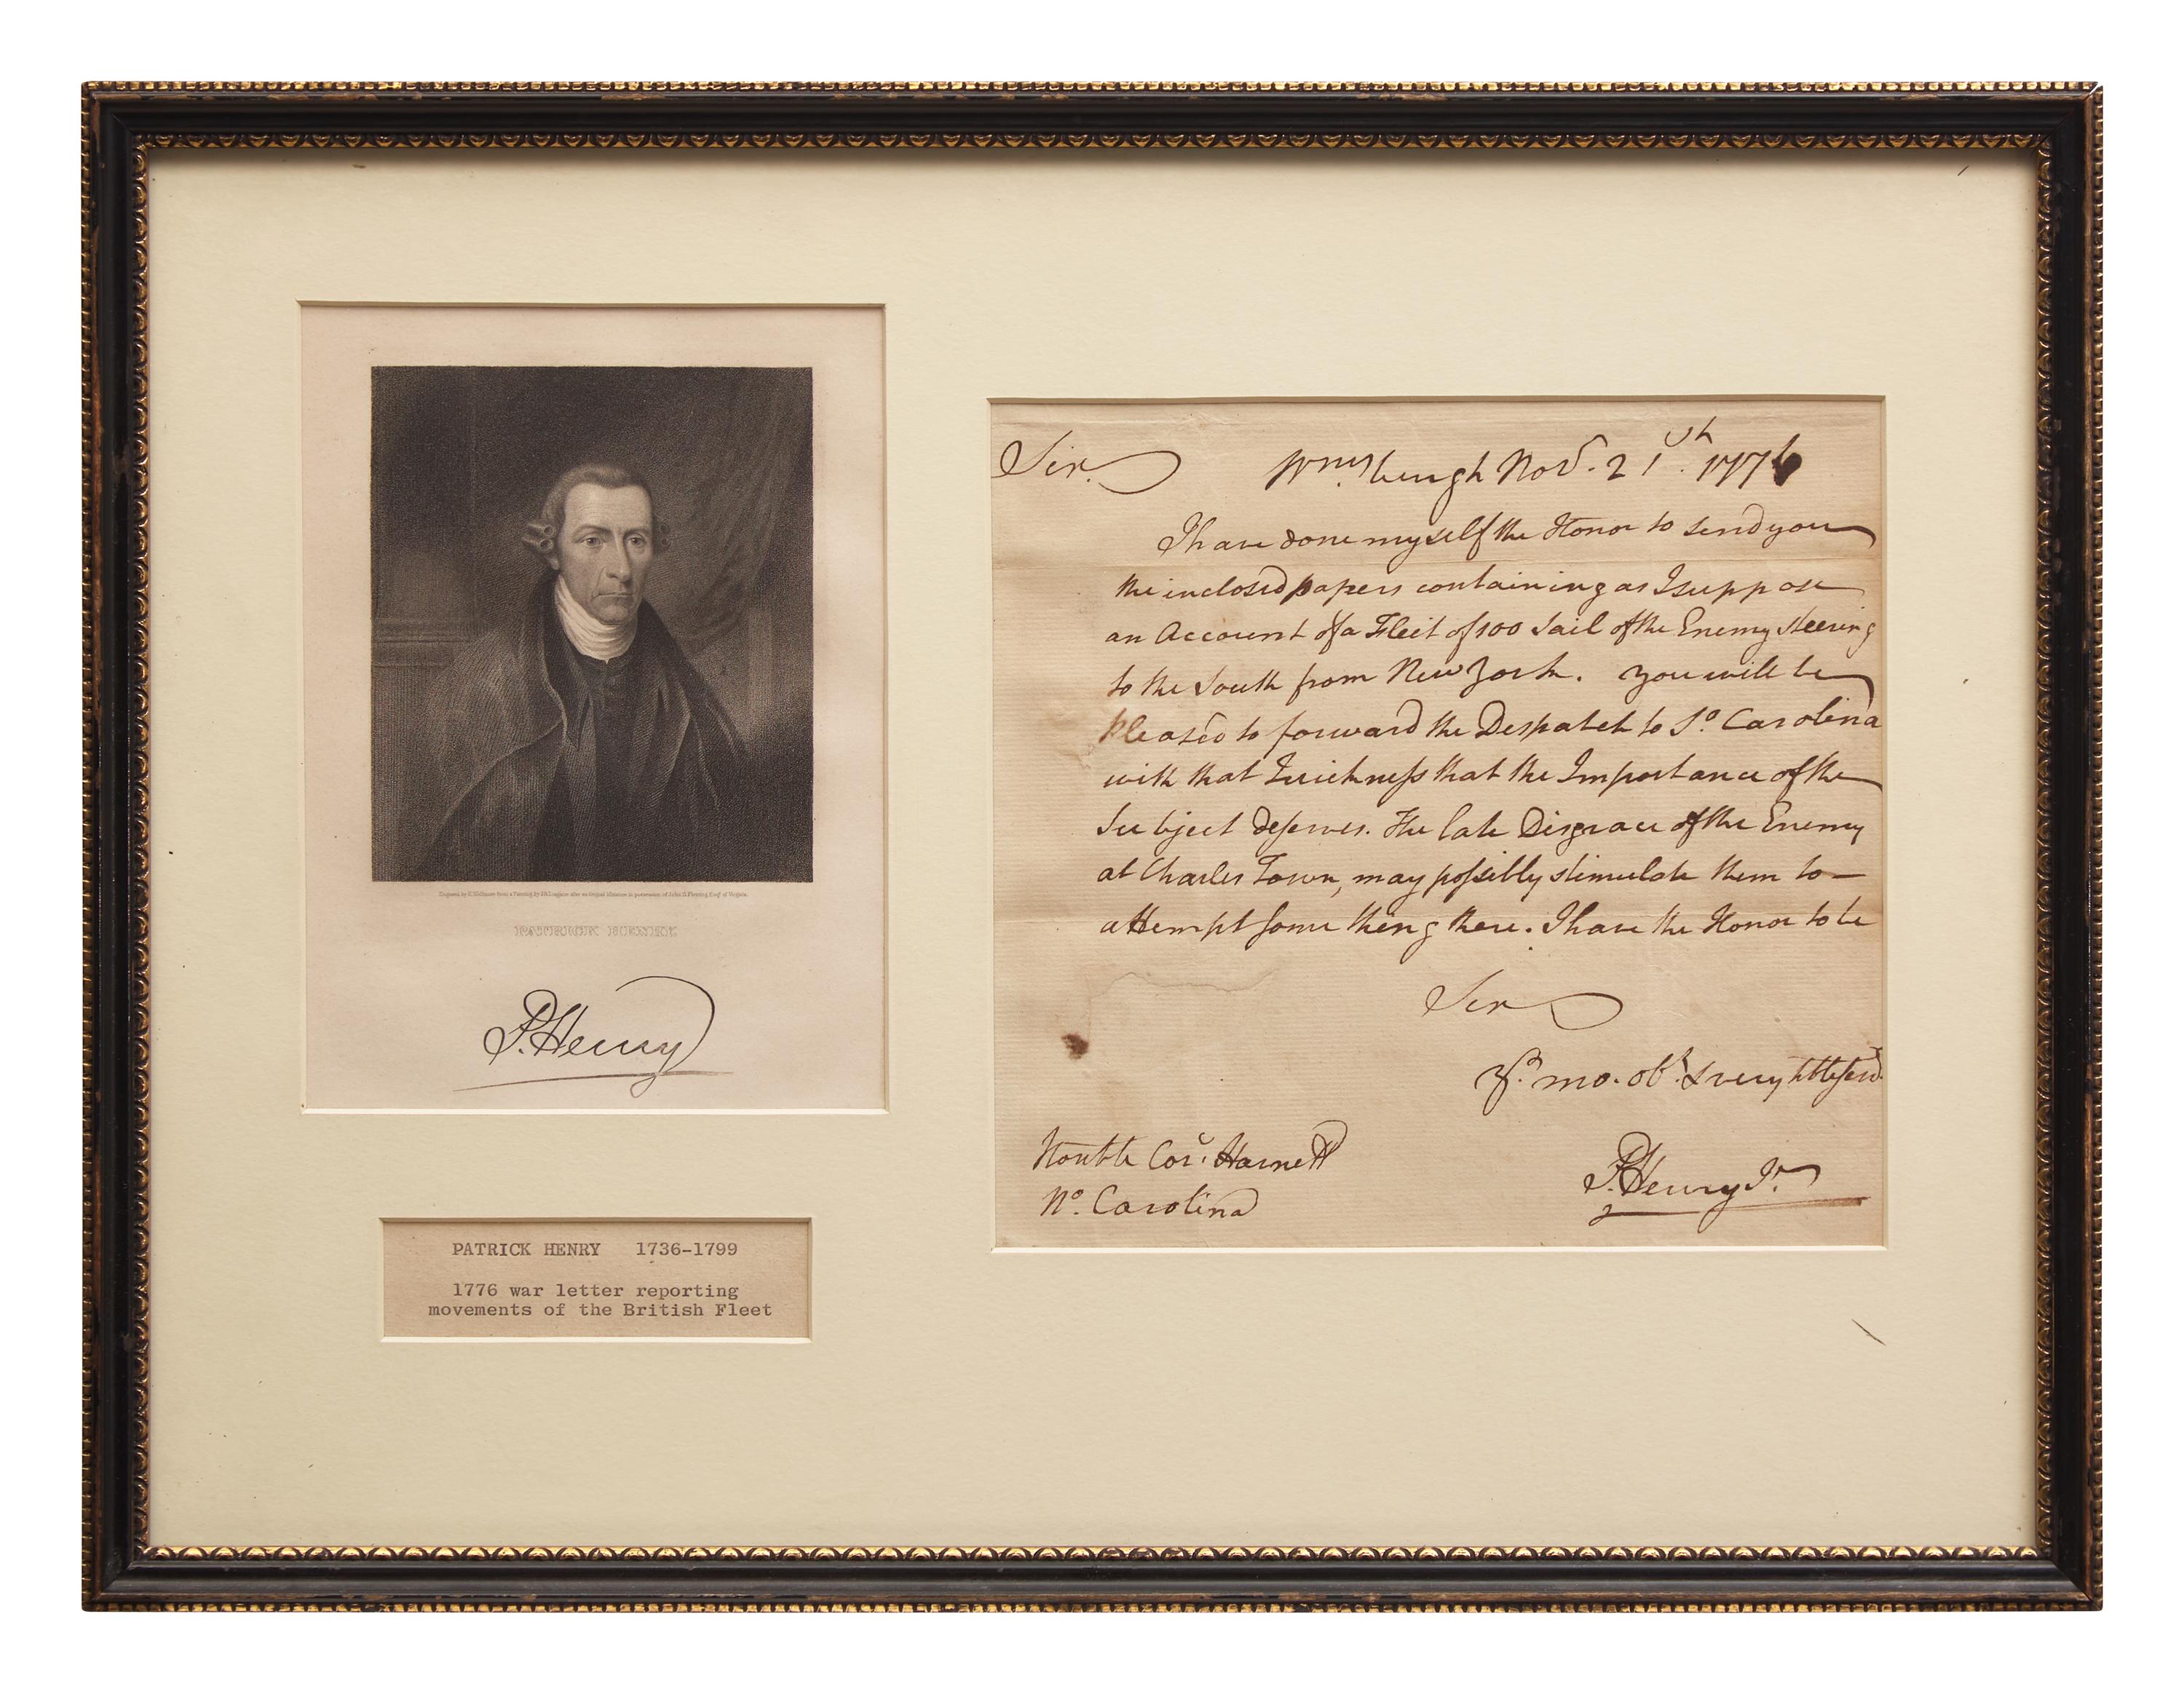 PATRICK HENRY
P. Henry
PATRICK HENRY 1736-1799
1776 war letter reporting
movements of the British Fleet
Sir. Wmsburgh Nov. 21st. 1776
I have done myself the Honor to send you
the inclosed papers containing as I suppose
an Account of a Fleet of 100 Sail of the Enemy steering
to the South from New York. You will be
pleased to forward the Despatch to So. Carolina
with that Quickness that the Importance of the
Subject deserves. The late Disgrace of the Enemy
at Charles Town, may possibly stimulate them to —
attempt some thing there. I have the Honor to be
Sir
Yr. mo. obt. & very hble servt.
P. Henry Jr.
Honble Cors. Harnett
No. Carolina